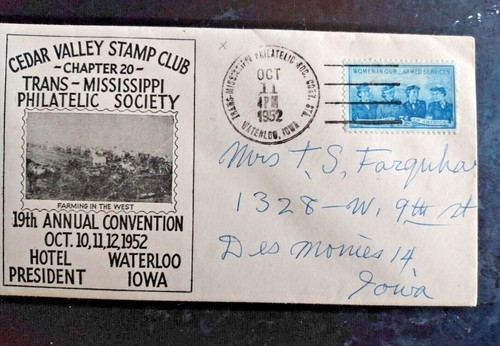 CEDAR VALLEY STAMP CLUB
- CHAPTER 20 -
TRANS-MISSISSIPPI
PHILATELIC SOCIETY
FARMING IN THE WEST
19th ANNUAL CONVENTION
OCT. 10, 11, 12, 1952
HOTEL WATERLOO
PRESIDENT IOWA
TRANS-MISSISSIPPI PHILATELIC SOC. CONV. STA.
OCT
11
4 PM
1952
WATERLOO, IOWA
WOMEN IN OUR ARMED SERVICES
Mrs T. S. Farquha
1328-W. 9th st
Des Monies 14
Iowa